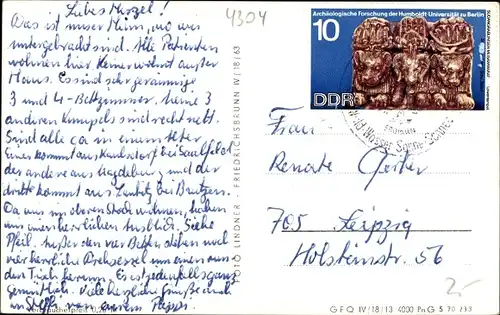 Liebes Mursel!
Das ist unser Heim, wo wir
untergebracht sind. Alle Patienten
wohnen hier. Keiner wohnt außer
Haus. Es sind sehr geräumige
3 und 4-Bettzimmer. Meine 3
anderen Kumpels sind recht nett.
Sind alle ca in einem Alter
Einer kommt aus Kaulsdorf bei Saalfeld
der andere aus Magdeburg und der
dritte kommt aus bei
Da wir im oberen Stock wohnen, haben
wir einen herrlichen Ausblick. Siehe
Pfeil. Außer den vier Betten stehen noch
vier herrliche Drehsessel um einen runden
den Tisch herum. Es ist jedenfalls ganz
gemütlich. Viele herzliche Grüße auch
an Steffi von Pappi
4304
FOTO LINDNER · FRIEDRICHSBRUNN IV/18/63
Archäologische Forschung der Humboldt-Universität zu Berlin
10
DDR
Wald Wasser Sonne
Frau
Renate
705 Leipzig
Holsteinstr. 56
25
GFQ IV/18/13 4000 PnG S 70/33